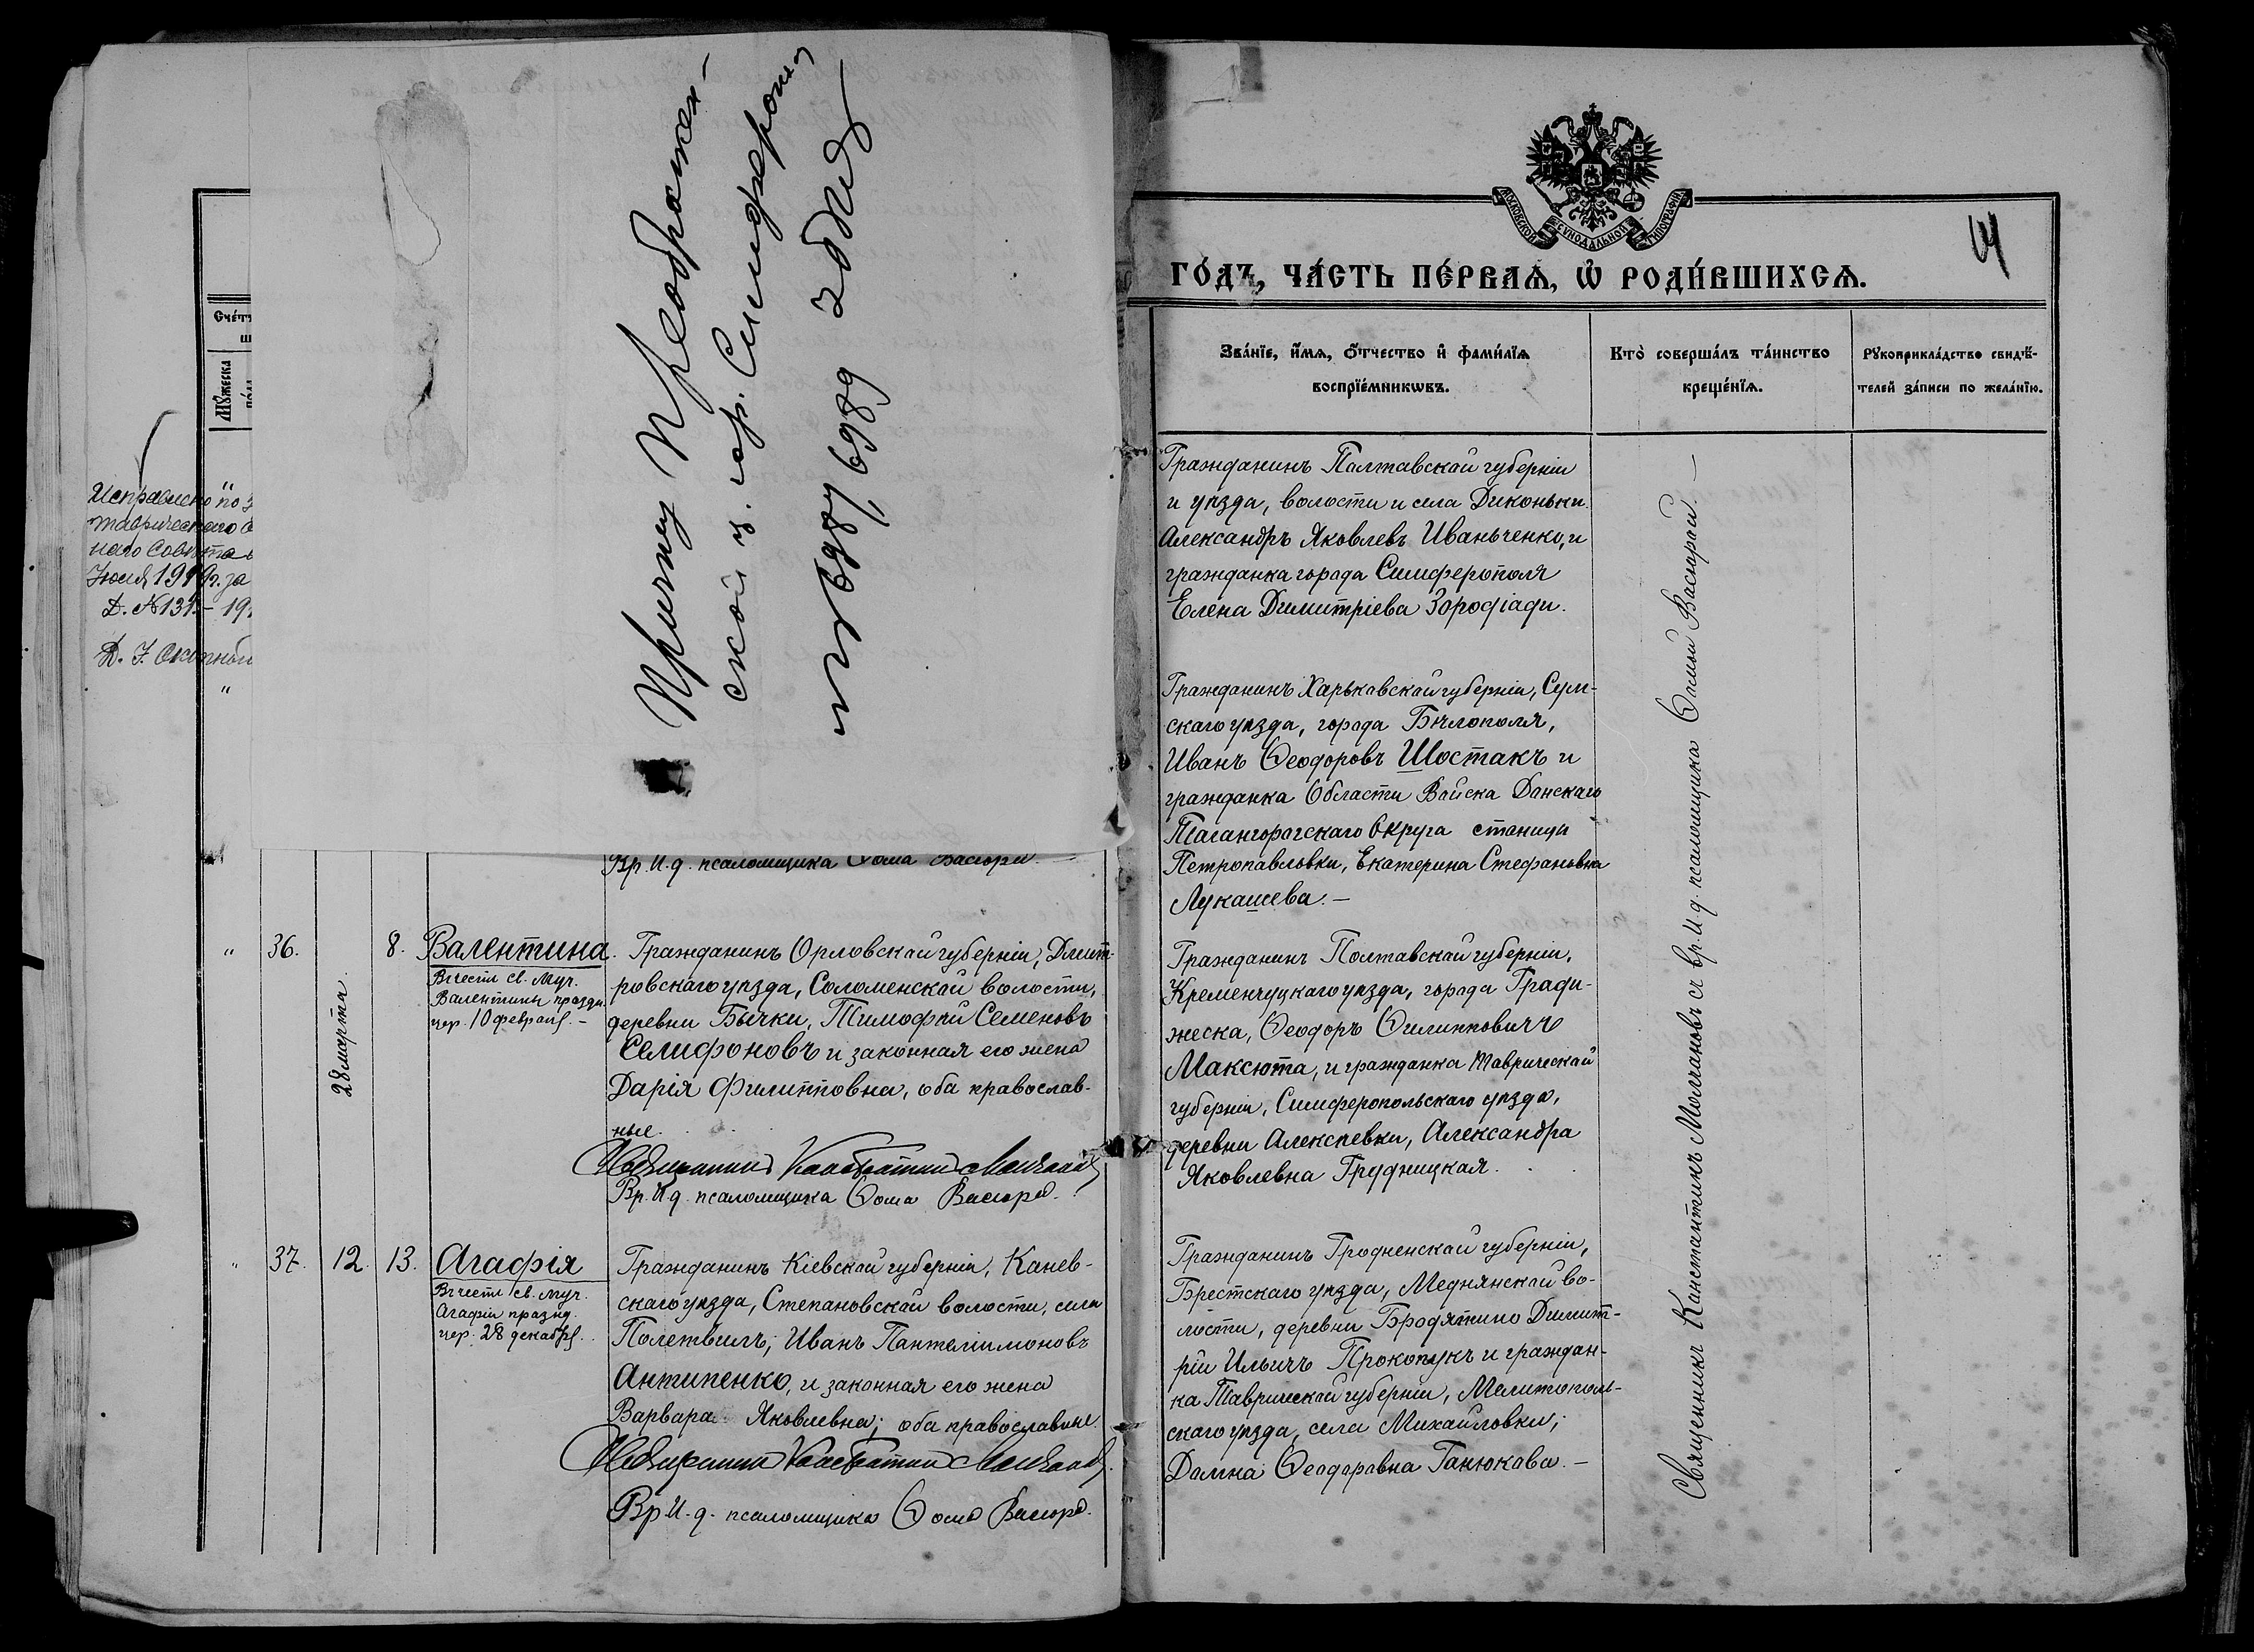 Причту Преображен-
ской ц. гор. Симферополя
Счетъ
Мꙋжеска
Исправлено по
таврическаго
наго Совѣта
Іюля 1919 г. за
Д. №131.– 19
Вр. И. д. псаломщика Ѳома Васюра.
"
36.
28 марта
8.
Валентина.
Въ честь св. муч.
Валентины праздн.
чер. 10 февраля. –
Гражданинъ Орловской губерніи, Дмит-
ровскаго уѣзда, Соломенской волости,
деревни Бычки, Тимофѣй Семеновъ
Селифоновъ и законная его жена
Дарія Филипповна, оба православ-
ные.
Священникъ Константинъ Молчановъ
Вр. И. д. псаломщика Ѳома Васюра.
"
37.
12.
13.
Агафія
Въ честь св. муч.
Агафіи празд.
чер. 28 декабря.
Гражданинъ Кіевской губерніи, Канев-
скаго уѣзда, Степановской волости, села
Иванъ Пантелимоновъ
Антипенко, и законная его жена
Варвара Яковлевна; оба православные.
Священникъ Константинъ Молчановъ
Вр. И. д. псаломщика Ѳома Васюра.
МОСКОВСКОЙ СѴНОДАЛЬНОЙ ТИПОГРАФІИ
ГОДЪ, ЧАСТЬ ПЕРВАѦ, Ѡ РОДИВШИХСѦ.
Званїе, имѧ, отчество и фамилїѧ
воспрїемникѡвъ.
Кто совершалъ таинство
крещенїѧ.
Рꙋкоприкладство свидѣ-
телей записи по желанїю.
Гражданинъ Палтавской губерніи
и уѣзда, волости и села Диконьки
Александръ Яковлевъ Иваньченко, и
гражданка города Симферополя
Елена Димитріева Зорофіади.
Гражданинъ Харьковской губерніи, Сум-
скаго уѣзда, города Бѣлополя,
Иванъ Ѳеодоровъ Шостакъ и
гражданка Области Войска Данскаго
Тагангорагскаго Округа станицы
Петропавловки, Екатерина Стефановна
Лукашева. –
Гражданинъ Полтавской губерніи,
Кременчуцкаго уѣзда, города Гради-
жеска, Ѳеодоръ Ѳилипповичъ
Максюта, и гражданка Таврической
губерніи, Симферопольскаго уѣзда,
деревни Алексѣевки, Александра
Яковлевна Грудницкая.
Гражданинъ Гродненской губерніи,
Брестскаго уѣзда, Меднянской во-
лости, деревни Бродятино Димит-
рій Ильичъ Прокопукъ и граждан-
ка Таврической губерніи, Мелитополь-
скаго уѣзда, села Михайловки,
Домна Ѳеодоравна Ганюкова. –
Священникъ Канстантинъ Молчановъ съ вр. И. д. псаломщика Ѳомой Васюрой. –